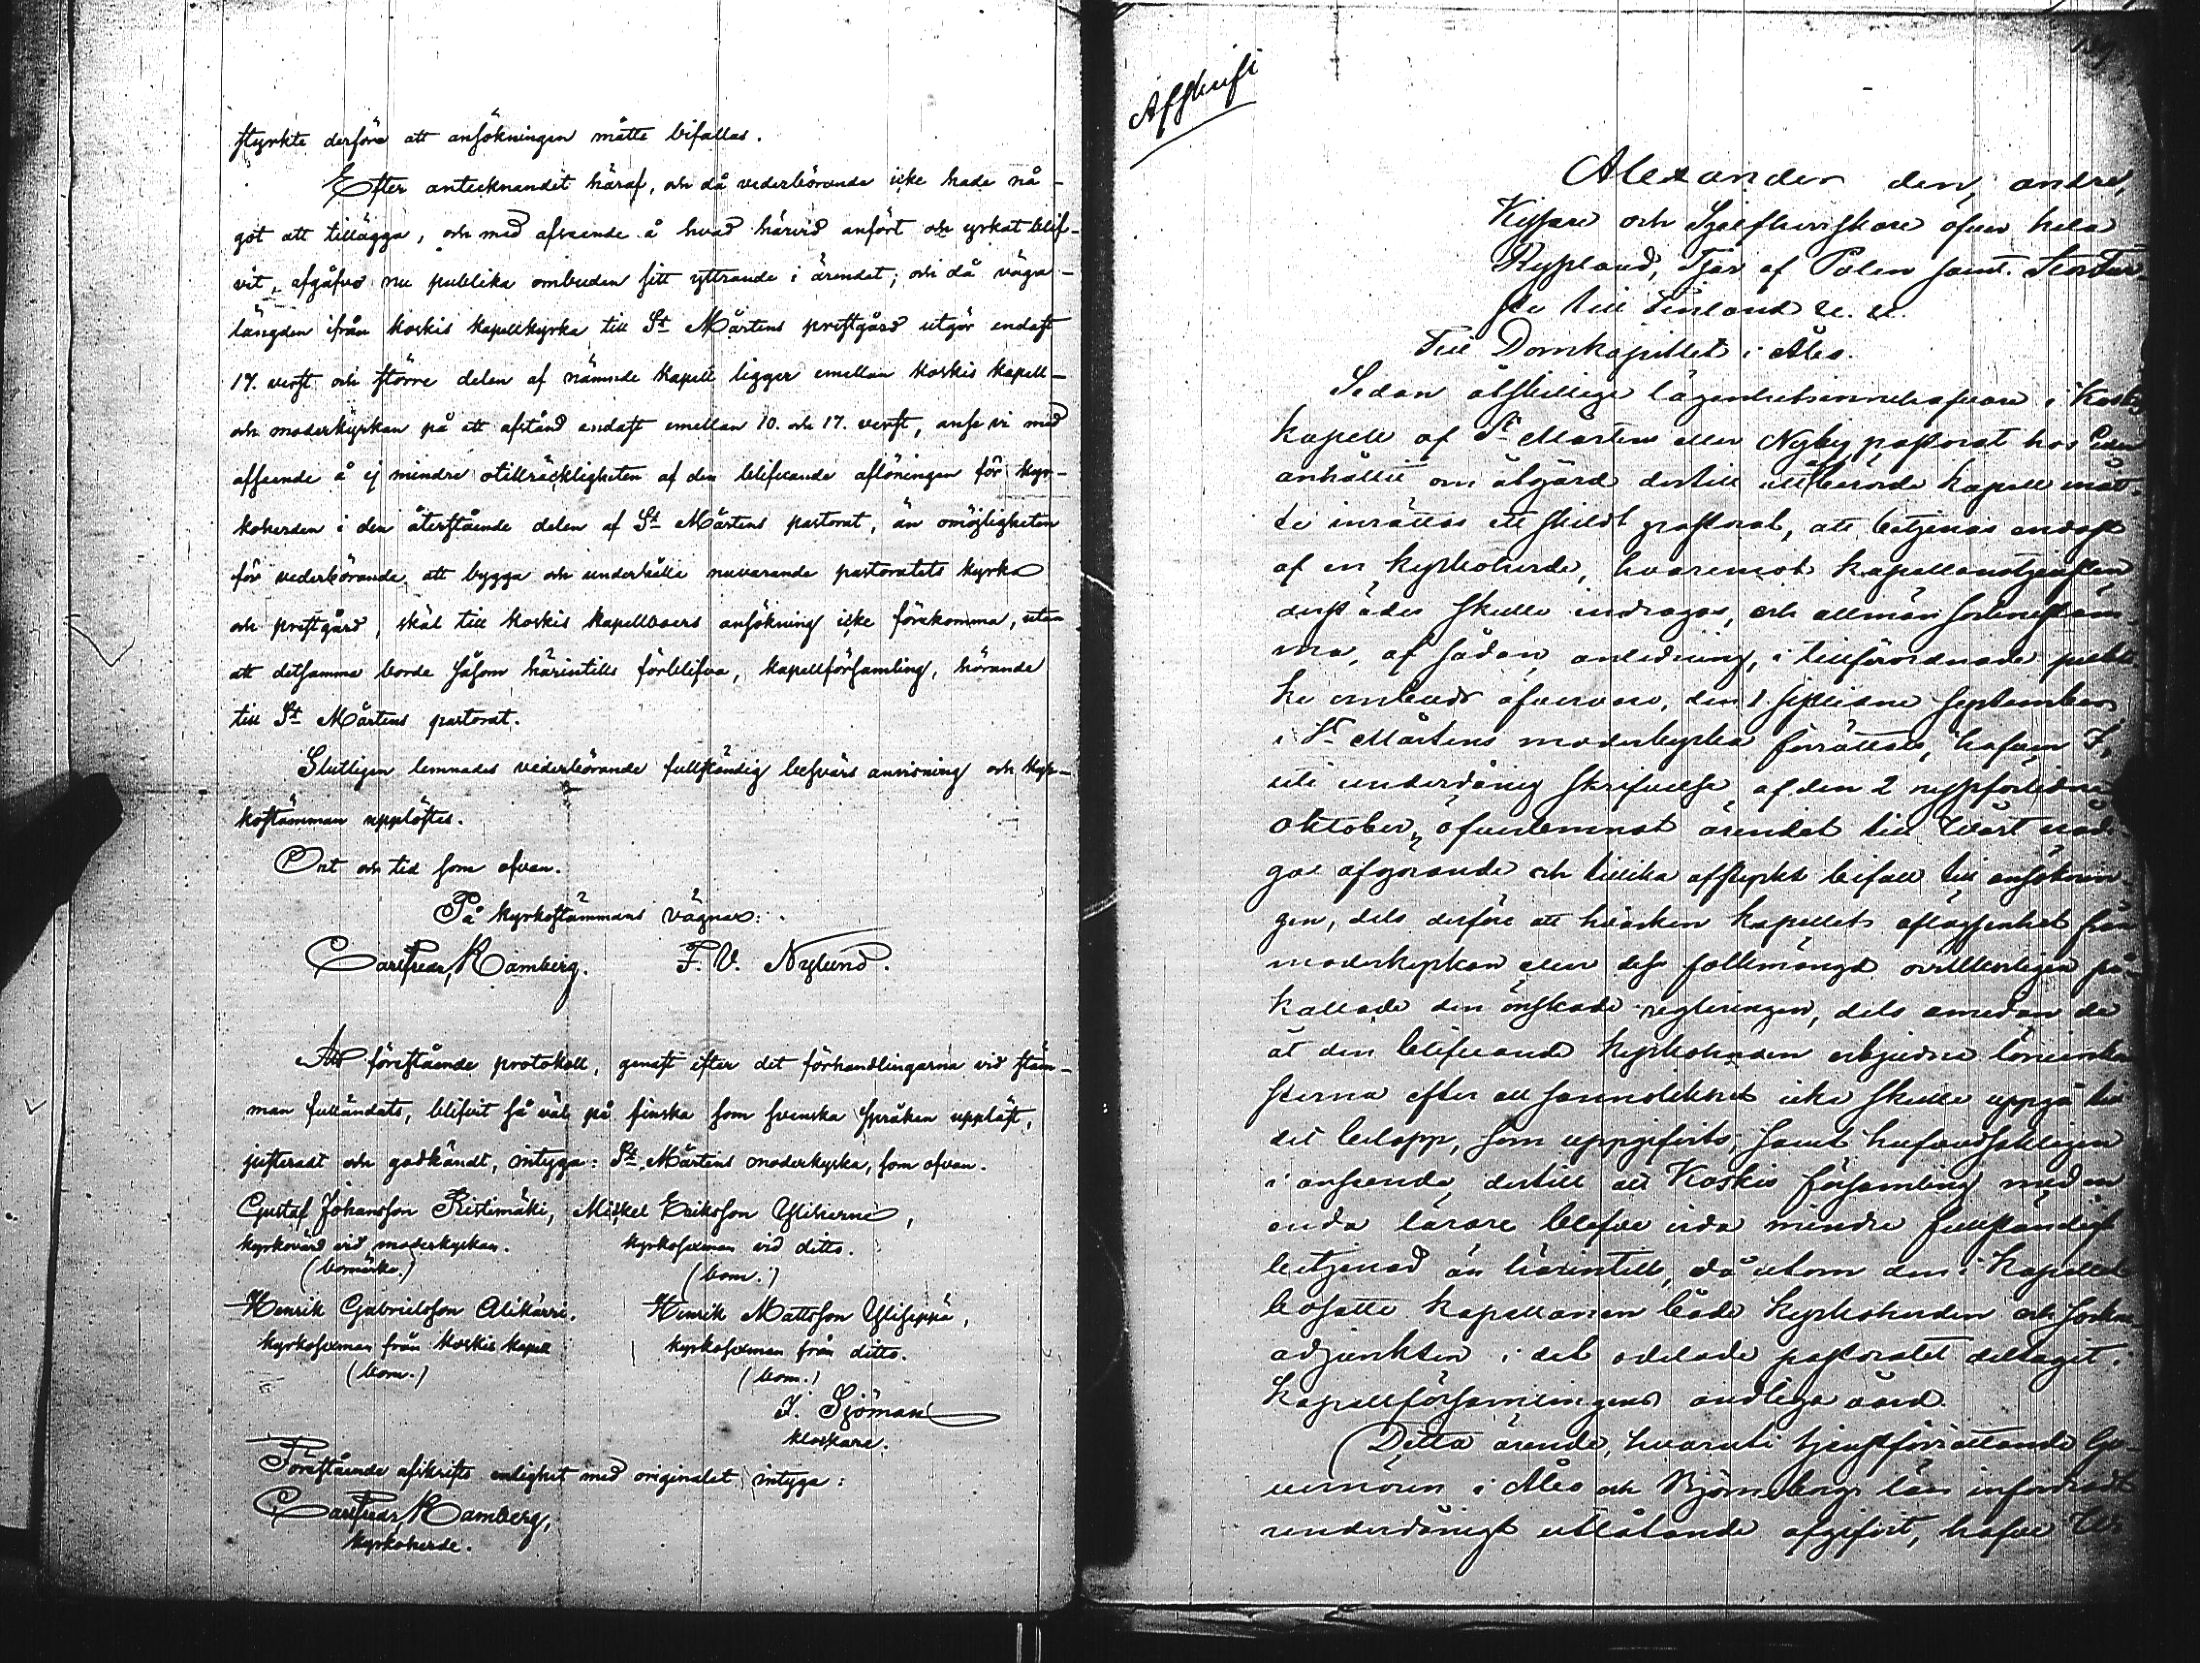 styrkte derföre att ansökningen måtte bifallas.
Efter antecknandet häraf, och då vederbörande icke hade nå-
got att tillägga, och med afseende å hvad härvid anfört och yrkat blif-
vit, afgåfvo nu publika ombuden sitt yttrande i ärendet; och då väga-
längden ifrån Koskis kapellkyrka till St Mårtens prestgård utgör endast
17. verst och större delen af nämnde kapell ligger emellan Koskis kapell-
och moderkyrkan på ett afstånd endast emellan 10. och 17. verst, anse vi med
afseende å ej mindre otillräckligheten af den blifvande aflöningen för kyr-
koherden i den återstående delen af St Mårtens pastorat, än omöjligheten
för vederbörande att bygga och underhålla nuvarande pastoratets kyrka
och prestgård, skäl till Koskis kapellboers ansökning icke förekomma, utan
att detsamma borde såsom härintills förblifva, kapellförsamling, hörande
till St Mårtens pastorat.
Slutligen lemnades vederbörande fullständig besvärs anvisning och kyr-
kostämman upplöstes.
Ort och tid som ofvan.
På kyrkostämmans vägnar:
Carl Fredr. Ramberg. F. V. Nylund.
Att förestående protokoll, genast efter det förhandlingarna vid stäm-
man fulländats, blifvit så väl på finska som svenska språken uppläst,
justeradt och godkändt, intyga: St Mårtens moderkyrka, som ofvan.
Gustaf Johansson Ristimäki, Mickel Eriksson
kyrkovärd vid moderkyrkan. kyrkosexman vid ditto.
(bomärke.) (bom.)
Henrik Gabrielsson Alikärri. Henrik Mattsson Yliseppä,
kyrkosexman från Koskis kapell kyrkosexman från ditto.
(bom.) (bom.)
J. Sjöman
klockare.
Förestående afskrifts enlighet med originalet intyga:
Carl Fredr. Ramberg,
kyrkoherde.
Afskrift
Alexander den andre,
Kejsare och Sjelfherrskare öfver hela
Ryssland, Tsar af Polen samt Storfur-
ste till Finland &c. &c.
Till Domkapitlet i Åbo.
Sedan åtskillige lägenhetsinnehafvare i Koskis
kapell af St Mårtens eller Nyby pastorat hos Eder
anhållit om åtgärd dertill att berörde kapell måt-
te inrättas ett skildt pastorat, att betjenas endast
af en kyrkoherde, hvaremot kapellanstjensten
derstädes skulle indragas, och allmän sockenstäm-
ma, af sådan anledning, i tillförordnade publi-
ke ombuds öfvervaro, den 1 sistlidne September
i St Mårtens moderkyrka förrättats, hafven I,
uti underdånig skrifvelse af den 2 nyssförlidne
Oktober, öfverlemnat ärendet till Vårt nåd-
ga afgörande och tillika afstyrkt bifall till ansöknin-
gen, dels derföre att hvarken kapellets aflägsenhet från
moderkyrkan eller dess folkmängd ovilkorligen på-
kallade den önskade regleringen, dels emedan de
åt den blifvande kyrkoherden erbjudna löneinkom-
sterna efter all sannolikhet icke skulle uppgå till
det belopp, som uppgifvits, samt hufvudsakligen
i anseende dertill att Koskis församling med en
enda lärare blefve vida mindre fullständigt
betjenad än härintill, då utom den i kapellet
bosatte kapellanen både kyrkoherden och sockne-
adjunkten i det odelade pastoratet deltagit i
kapellförsamlingens andliga vård.
Detta ärende, hvaruti tjenstförrättande Gu-
vernören i Åbo och Björneborgs län infordradt
underdånigt utlåtande afgifvit, hafve Vi